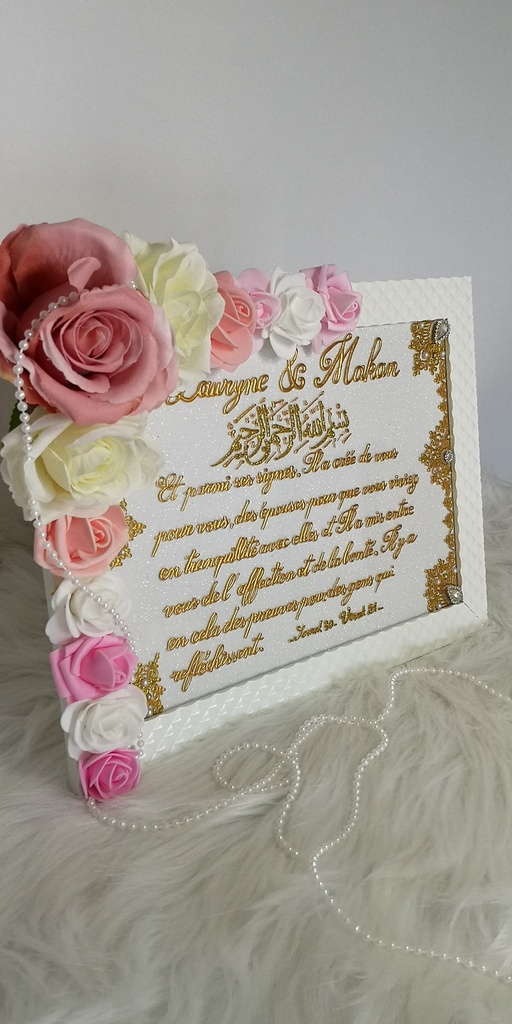 Lauryne & Makan
بسم الله الرحمن الرحيم
Et parmi ses signes. Il a créé de vous
pour vous, des épouses pour que vous viviez
en tranquillité avec elles et Il a mis entre
vous de l'affection et de la bonté. Il y a
en cela des preuves pour des gens qui
réfléchissent.
_Sourat 30- Verset 21_